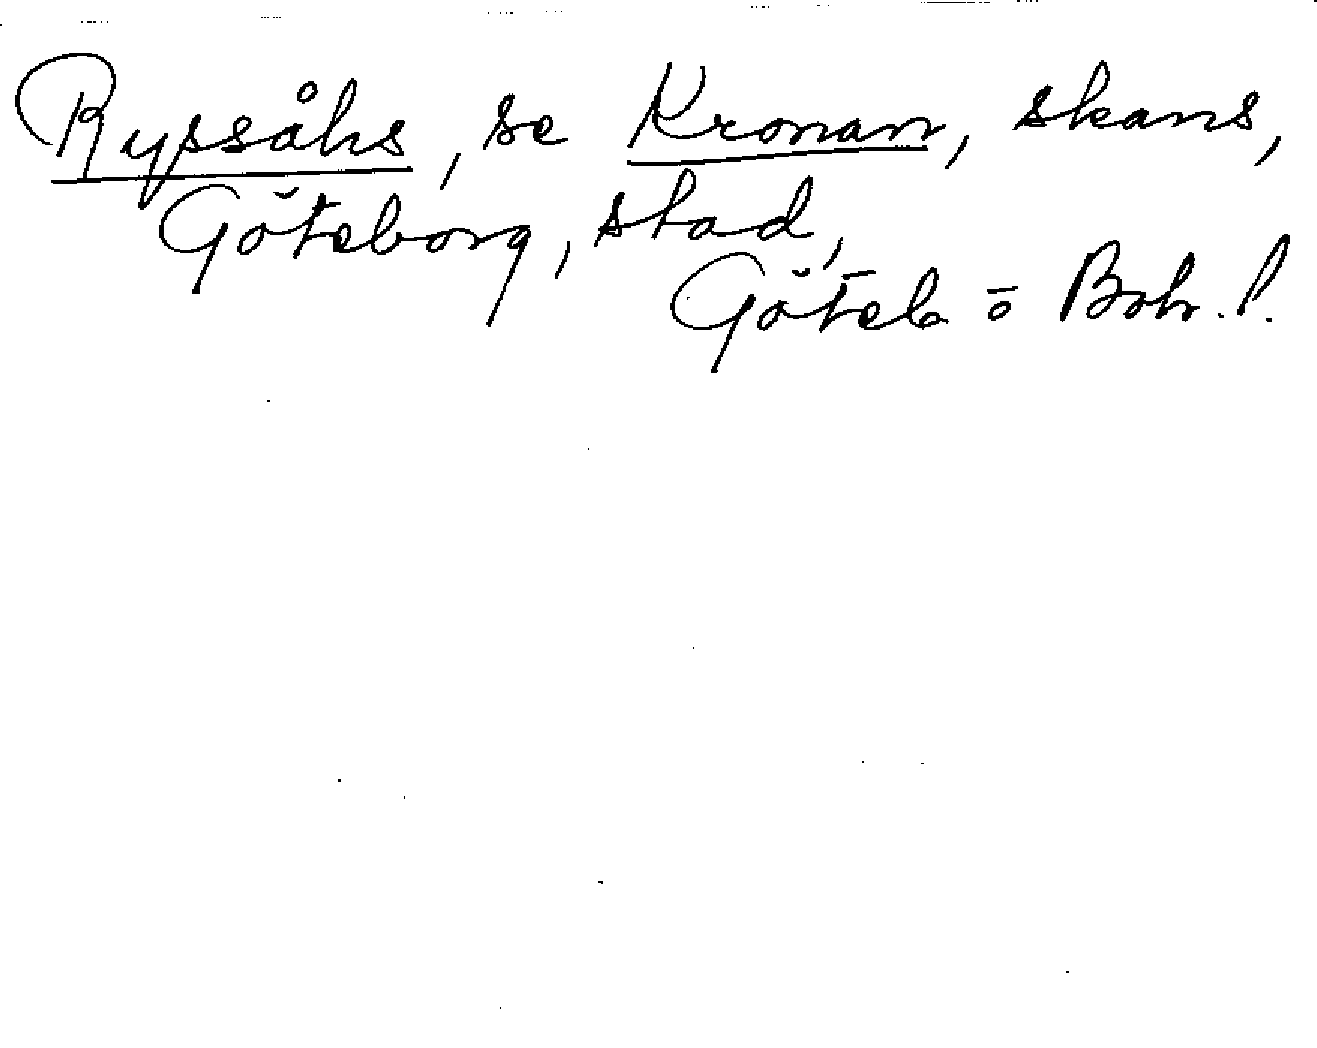 Ryssåhs, se Kronan, skans,
Göteborg, stad,
Göteb ō Boh. l.